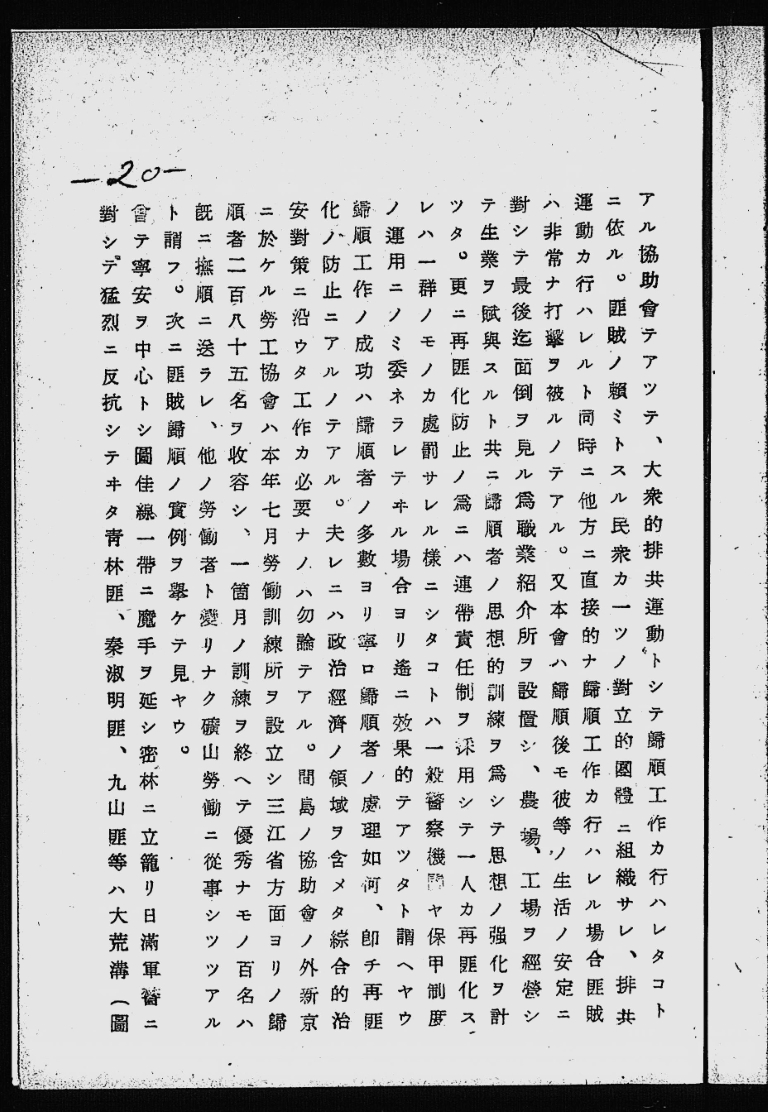 —20—
アル協助會テアツテ、大衆的排共運動トシテ歸順工作カ行ハレタコト
ニ依ル。匪賊ノ賴ミトスル民衆カ一ツノ對立的團體ニ組織サレ、排共
運動カ行ハレルト同時ニ他方ニ直接的ナ歸順工作カ行ハレル場合匪賊
ハ非常ナ打擊ヲ被ルノテアル。又本會ハ歸順後モ彼等ノ生活ノ安定ニ
對シテ最後迄面倒ヲ見ル爲職業紹介所ヲ設置シ、農場、工場ヲ經營シ
テ生業ヲ賦與スルト共ニ歸順者ノ思想的訓練ヲ爲シテ思想ノ强化ヲ計
ツタ。更ニ再匪化防止ノ爲ニハ連帶責任制ヲ採用シテ一人カ再匪化ス
レハ一群ノモノカ處罰サレル樣ニシタコトハ一般警察機關ヤ保甲制度
ノ運用ニノミ委ネラレテヰル場合ヨリ遙ニ效果的テアツタト謂ヘヤウ
歸順工作ノ成功ハ歸順者ノ多數ヨリ寧ロ歸順者ノ處理如何、卽チ再匪
化ノ防止ニアルノテアル。夫レニハ政治經濟ノ領域ヲ含メタ綜合的治
安對策ニ沿ウタ工作カ必要ナノハ勿論テアル。間島ノ協助會ノ外新京
ニ於ケル勞工協會ハ本年七月勞働訓練所ヲ設立シ三江省方面ヨリノ歸
順者二百八十五名ヲ收容シ、一箇月ノ訓練ヲ終ヘテ優秀ナモノ百名ハ
旣ニ撫順ニ送ラレ、他ノ勞働者ト變リナク礦山勞働ニ從事シツツアル
ト謂フ。次ニ匪賊歸順ノ實例ヲ擧ケテ見ヤウ。
會テ寧安ヲ中心トシ圖佳線一帶ニ魔手ヲ延シ密林ニ立籠リ日滿軍警ニ
對シテ猛烈ニ反抗シテヰタ靑林匪、秦淑明匪、九山匪等ハ大荒溝(圖